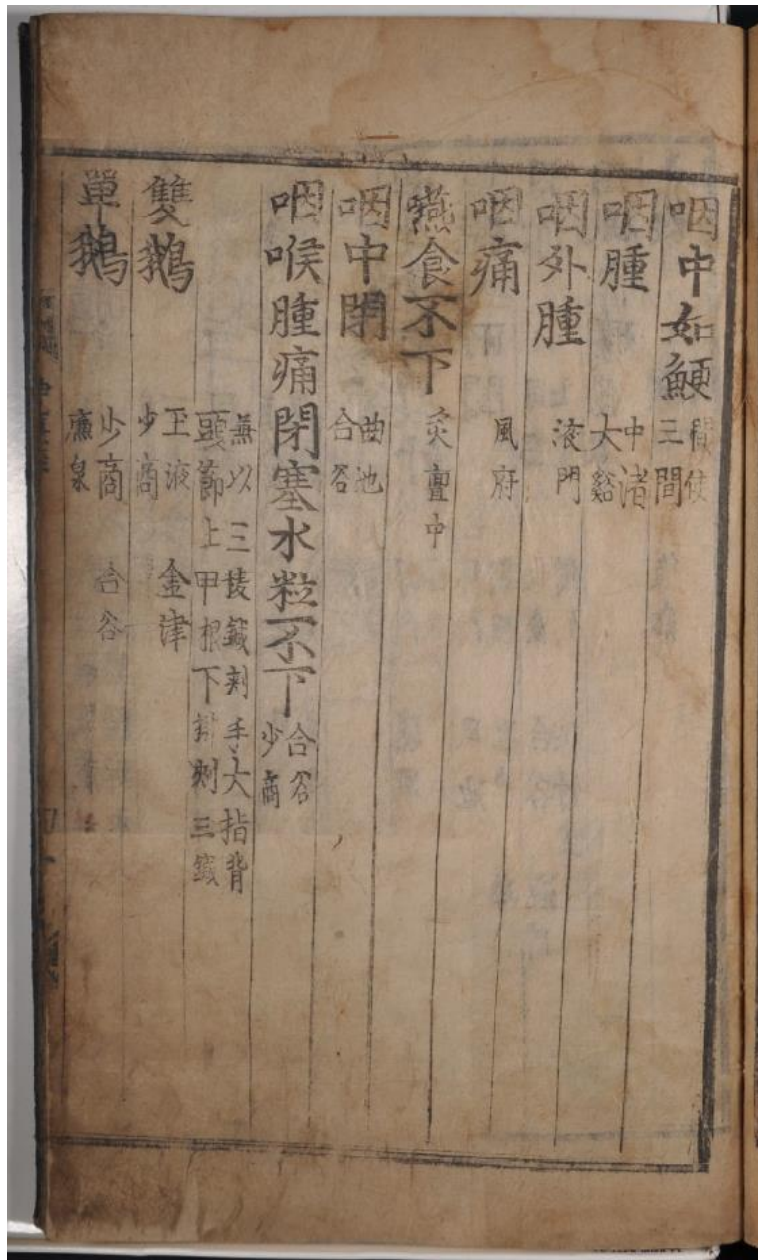 咽中如鯁 間使 三間
咽腫 中渚 大谿
咽外腫 液門
咽痛 風府
嚥食不下 灸亶中
咽中閉 曲池 合谷
咽喉腫痛閉塞水粒不下 合谷 少商
無以三稜鍼刺手大指背
頭節上甲根下 刺三鍼
雙鵝 玉液 金津 少商
單鵝 少商 合谷 廉泉